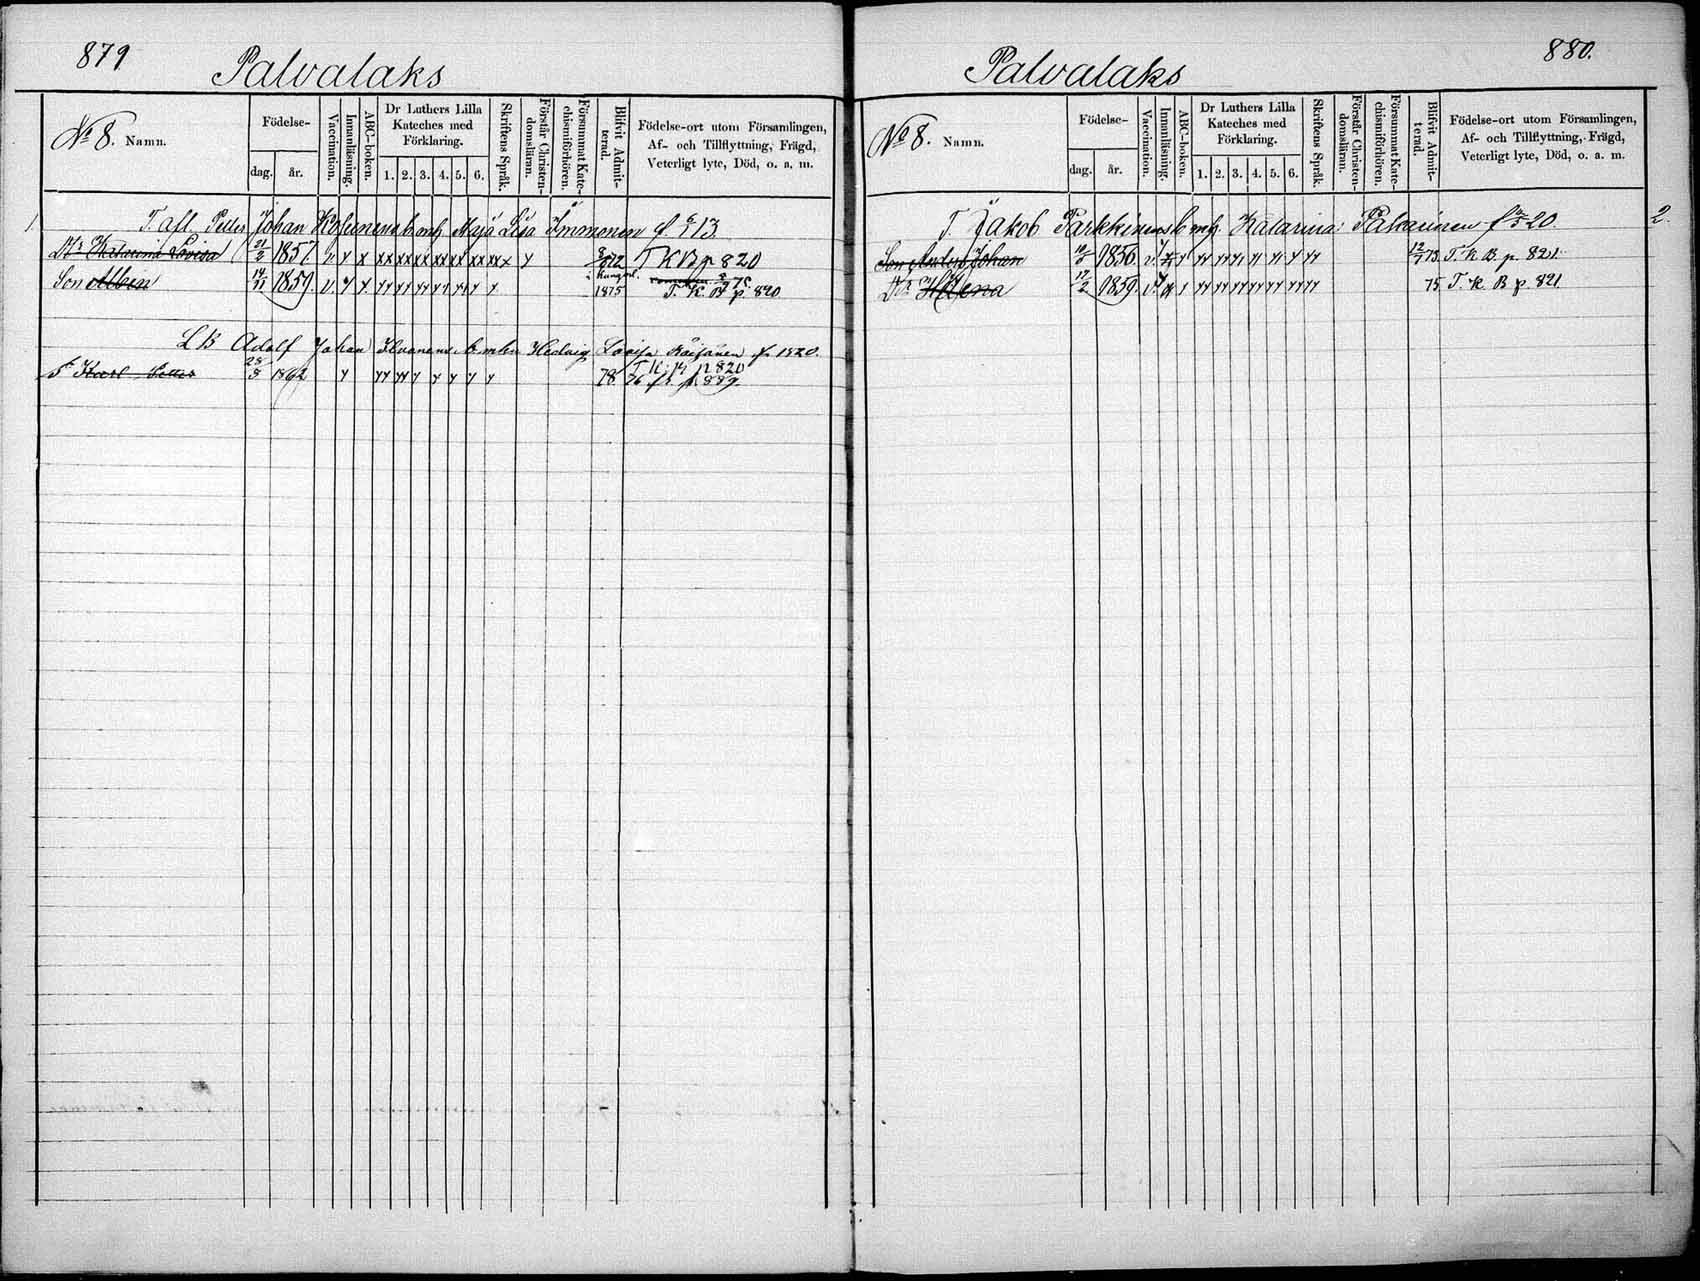 879
Palvalaks
No 8. Namn.
Födelse-
dag. år.
Vaccination.
Innanläsning.
ABC-boken.
Dr Luthers Lilla
Kateches med
Förklaring.
1. 2. 3. 4. 5. 6.
Skriftens Språk.
Förstår Christen-
domsläran.
Försummat Kate-
chismiförhören.
Blifvit Admit-
terad.
Födelse-ort utom Församlingen,
Af- och Tillflyttning, Frägd,
Veterligt lyte, Död, o. a. m.
1 T. afl. Petter Johan Kosunens b. m. h. Maja Lisa Immonen f. 13.
Dr Katarina Lovisa 21/2 1857. v x x xx xx xx xx xx xx x 72 T K B p 820
Son Albin 14/11 1859. v. 1875 75 T. K. B. p. 820
L B Adolf Johan b. m. h. Hedvig Lovisa Räisänen f. 1820.
Sn Karl Petter 28/8 1862 78 T K B p 820
76 p 889.
880.
Palvalaks
No 8. Namn.
Födelse-
dag. år.
Vaccination.
Innanläsning.
ABC-boken.
Dr Luthers Lilla
Kateches med
Förklaring.
1. 2. 3. 4. 5. 6.
Skriftens Språk.
Förstår Christen-
domsläran.
Försummat Kate-
chismiförhören.
Blifvit Admit-
terad.
Födelse-ort utom Församlingen,
Af- och Tillflyttning, Frägd,
Veterligt lyte, Död, o. a. m.
T. Jakob Parkkinens b. m. h. Katarina Pakarinen f. 20. 2.
Son Anders Johan 1856. v. 73. T. K. B. p. 821.
Dr Helena 17/2 1859. v. 75 T. K. B p. 821